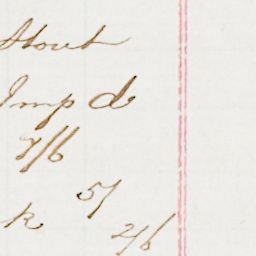 Stout
Imp do
7/6
5/
k
2/6